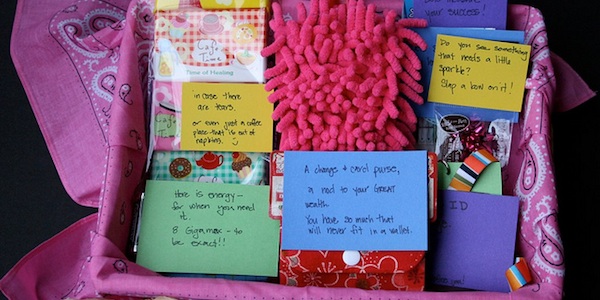 your success!
Cafe
Time
Time of Healing
Do you see something
that needs a little
sparkle?
Slap a bow on it!
in case there
are tears.
or even just a coffee
place that is out of
napkins.
Here is energy-
for when you need
it.
8 Gigamax - to
be exact!!
A change & card purse,
a nod to your GREAT
wealth.
You have so much that
will never fit in a wallet.
ID
you!